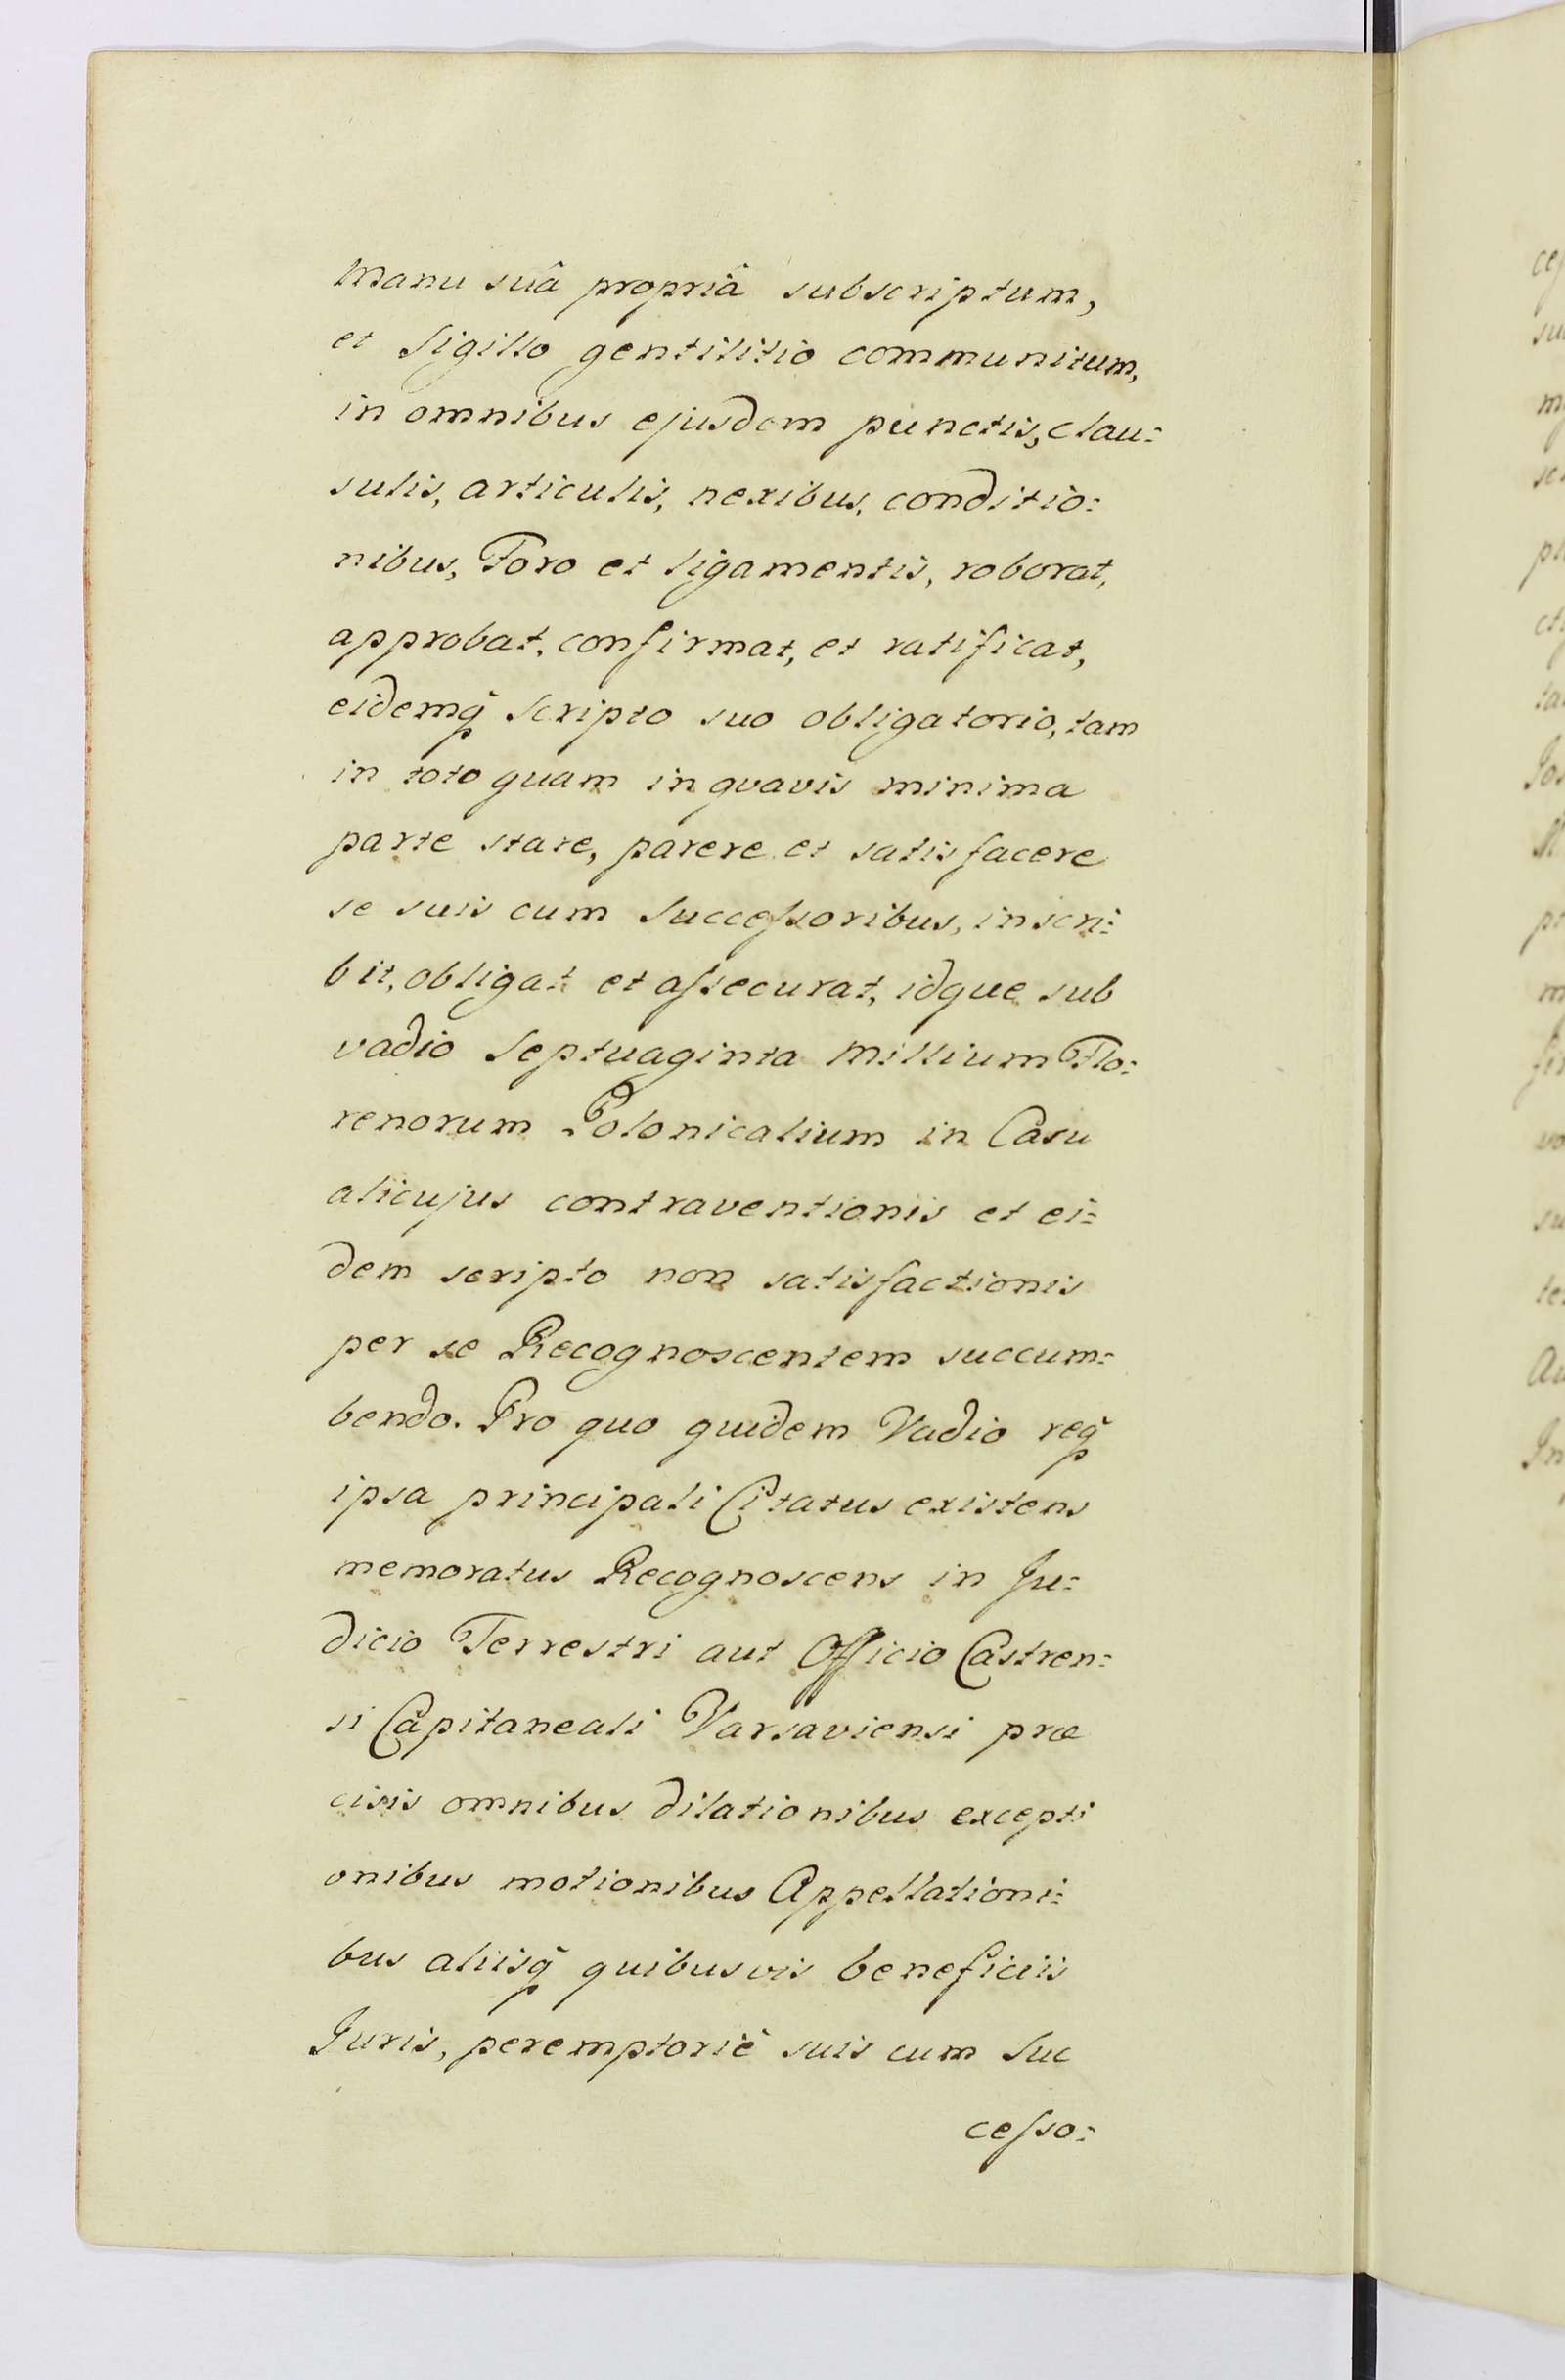 manu suâ propriâ subscriptum,
et Sigillo gentilitio communitum,
in omnibus ejusdem punctis, clau=
sulis, articulis, nexibus, conditio=
nibus, Foro et ligamentis, roborat,
approbat, confirmat, et ratificat,
eidemq̃ Scripto suo obligatorio, tam
in toto quam in quavis minima
parte stare, parere et satisfacere
se suis cum Succeſsoribus, inscri=
bit, obligat et aſsecurat, idque sub
vadio Septuaginta Millium Flo=
renorum Polonicalium in Casu
alicujus contraventionis et ei=
dem scripto non satisfactionis
per se Recognoscentem succum=
bendo. Pro quo quidem Vadio req̃
ipsa principali Citatus existens
memoratus Recognoscens in Ju=
dicio Terrestri aut Officio Castren=
si Capitaneali Varsaviensi præ
cisis omnibus dilationibus excepti
onibus motionibus Appellationi=
bus aliisq̃ quibusvis beneficiis
Juris, peremptoriè suis cum Suc
ceſso=